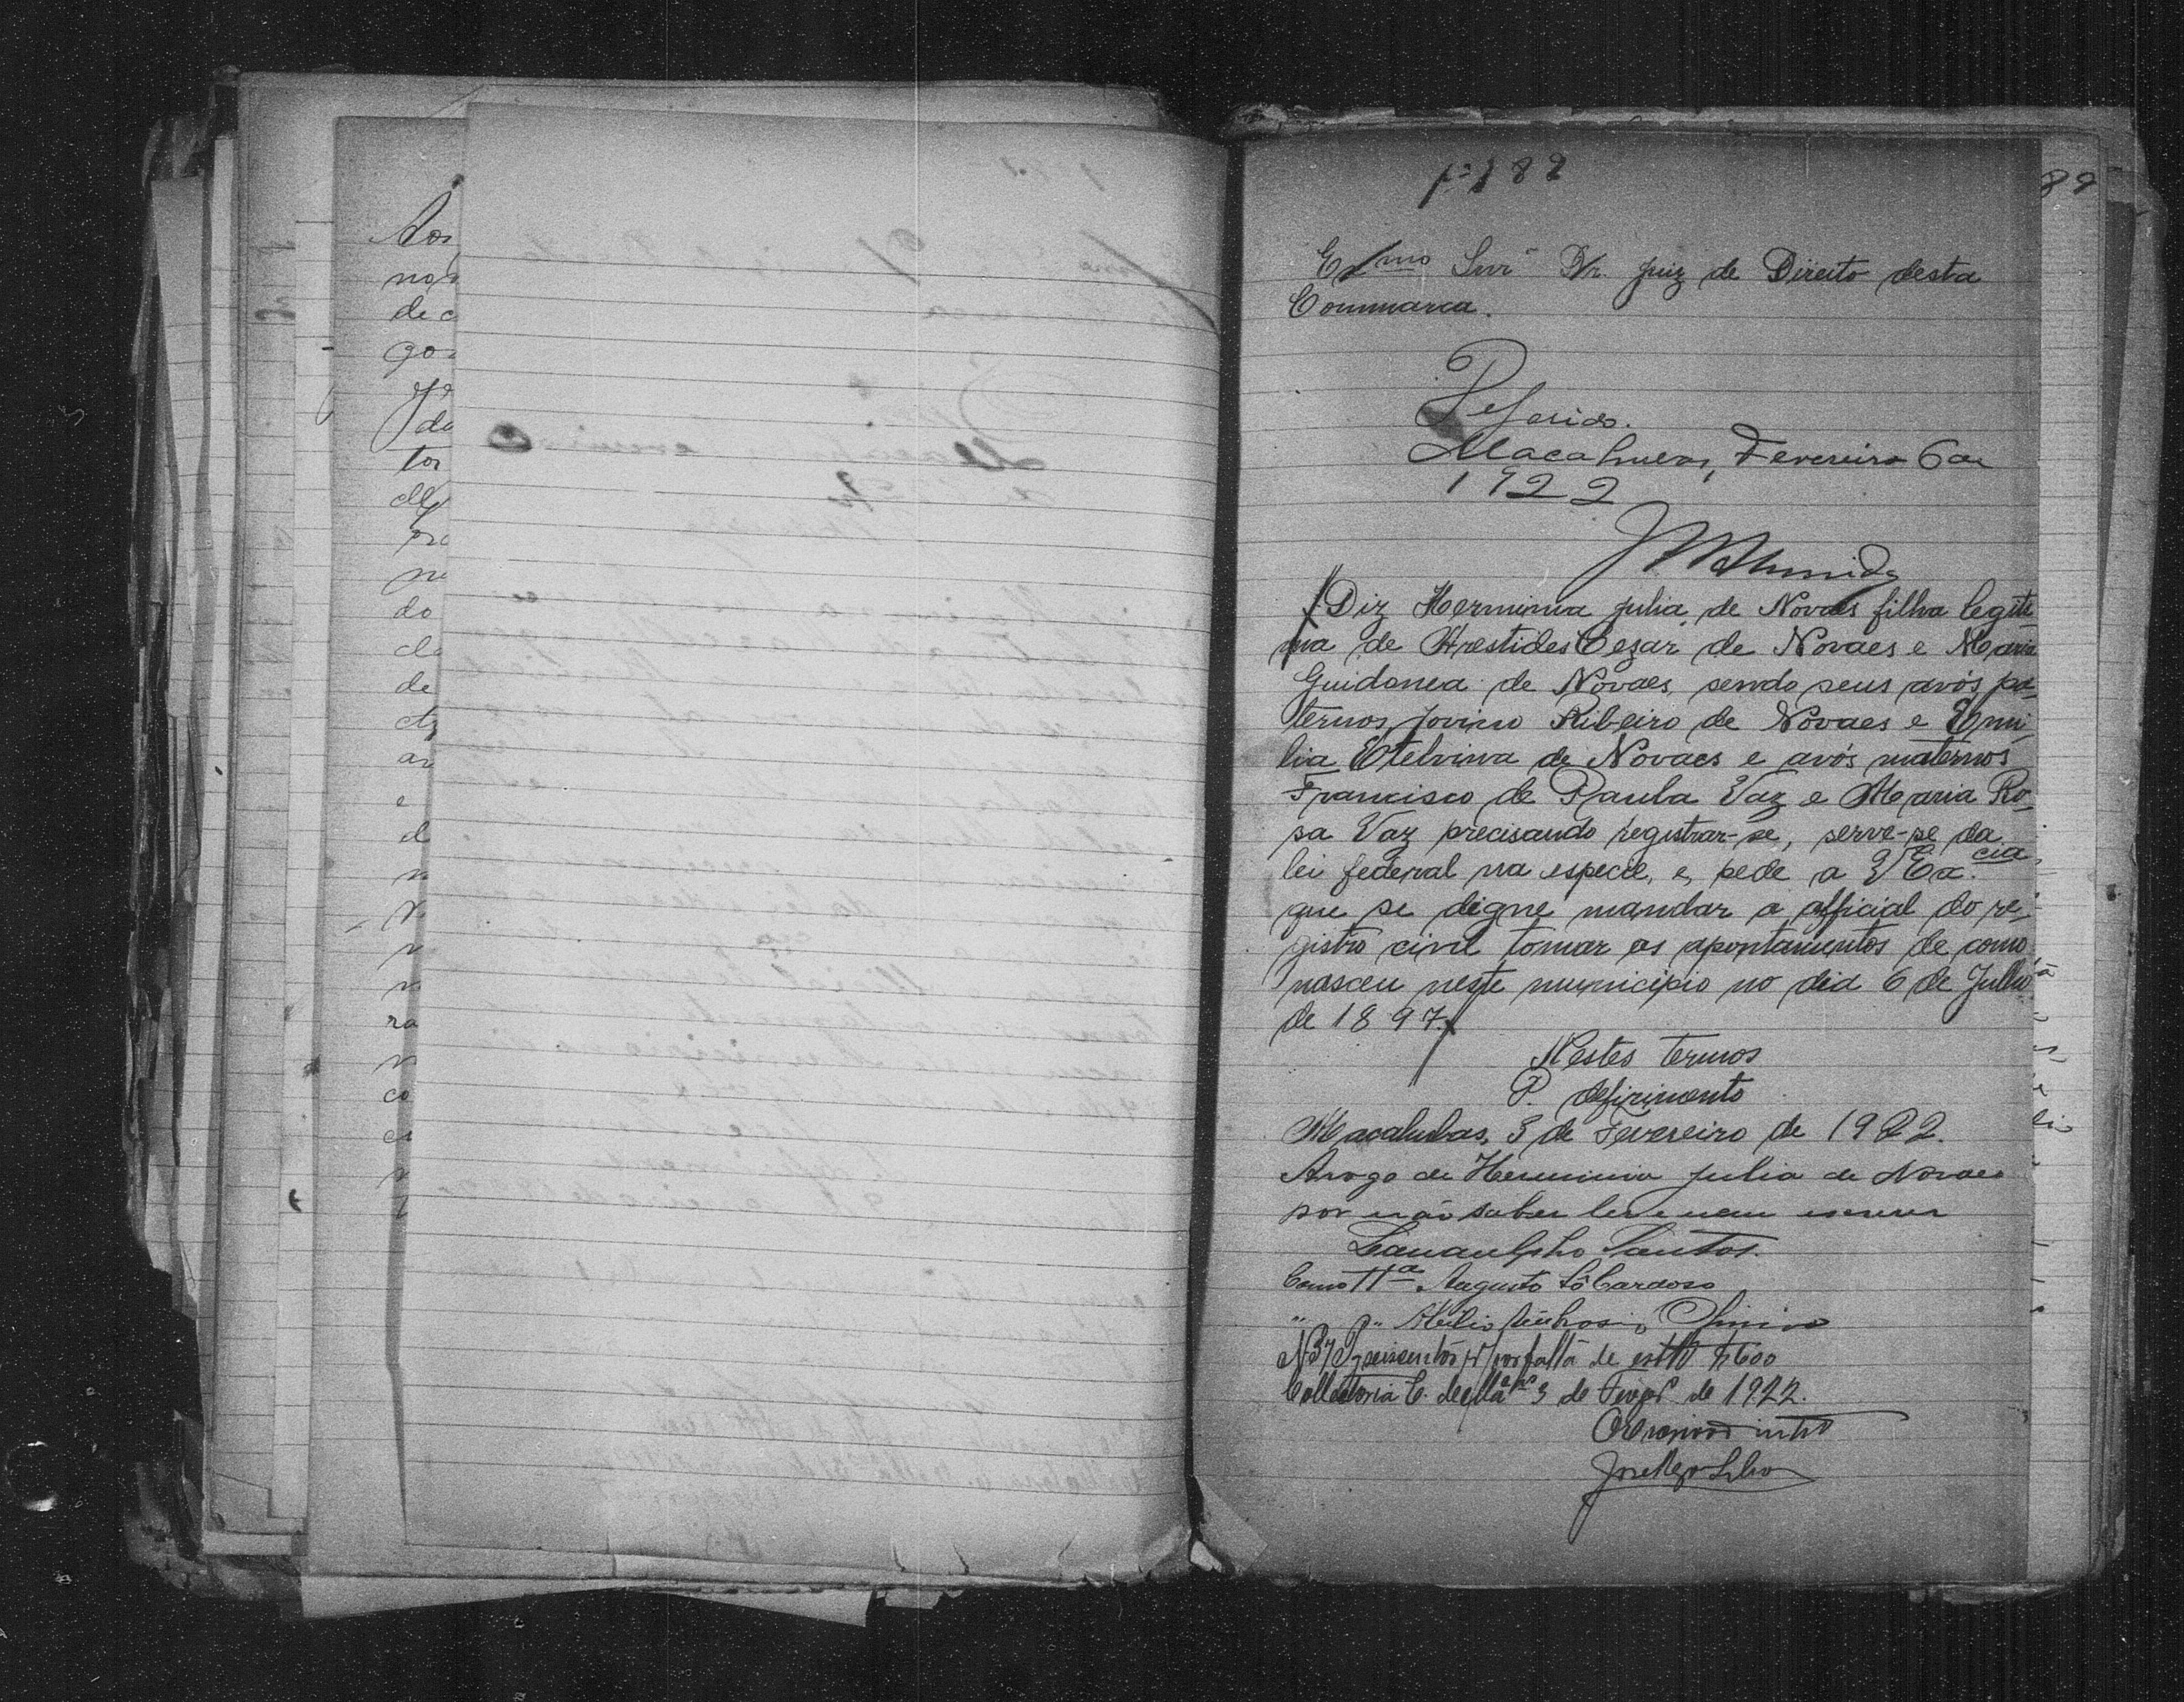 Aos
de c
do
tor
do
de
ar
e
ra
co
nº 182
Exmo Snr Dr. Juiz de Direito desta
Commarca.
Deferido.
Macahubas, Fevereiro 6 de
1922
Almeida
Diz Herminia Julia de Novaes filha legiti
ma de Arestides Cezar de Novaes e Maria
Guidonea de Novaes, sendo seus avós pa-
ternos Jovino Ribeiro de Novaes e Emi-
lia Etelvina de Novaes e avós maternos
Francisco de Paula Vaz e Maria Ro-
sa Vaz precisando registrar-se, serve-se da
lei federal na especie, e, pede a V Exa.cia
que se digne mandar o official do re-
gistro civil tomar os apontamentos de como
nasceu neste municipio no dia 6 de Julho
de 1897.
Nestes termos
P. defirimento
Macahubas, 3 de Fevereiro de 1922.
Arogo de Herminia Julia de Novaes
por não saber ler e nem escrever
Landulpho Santos.
Como Tta Augusto Sô Cardoso
N 37 seiscentos rs por falta de estto $600
Collectoria 3 de Fevro de 1922.
O Escrivão intro
José Rego